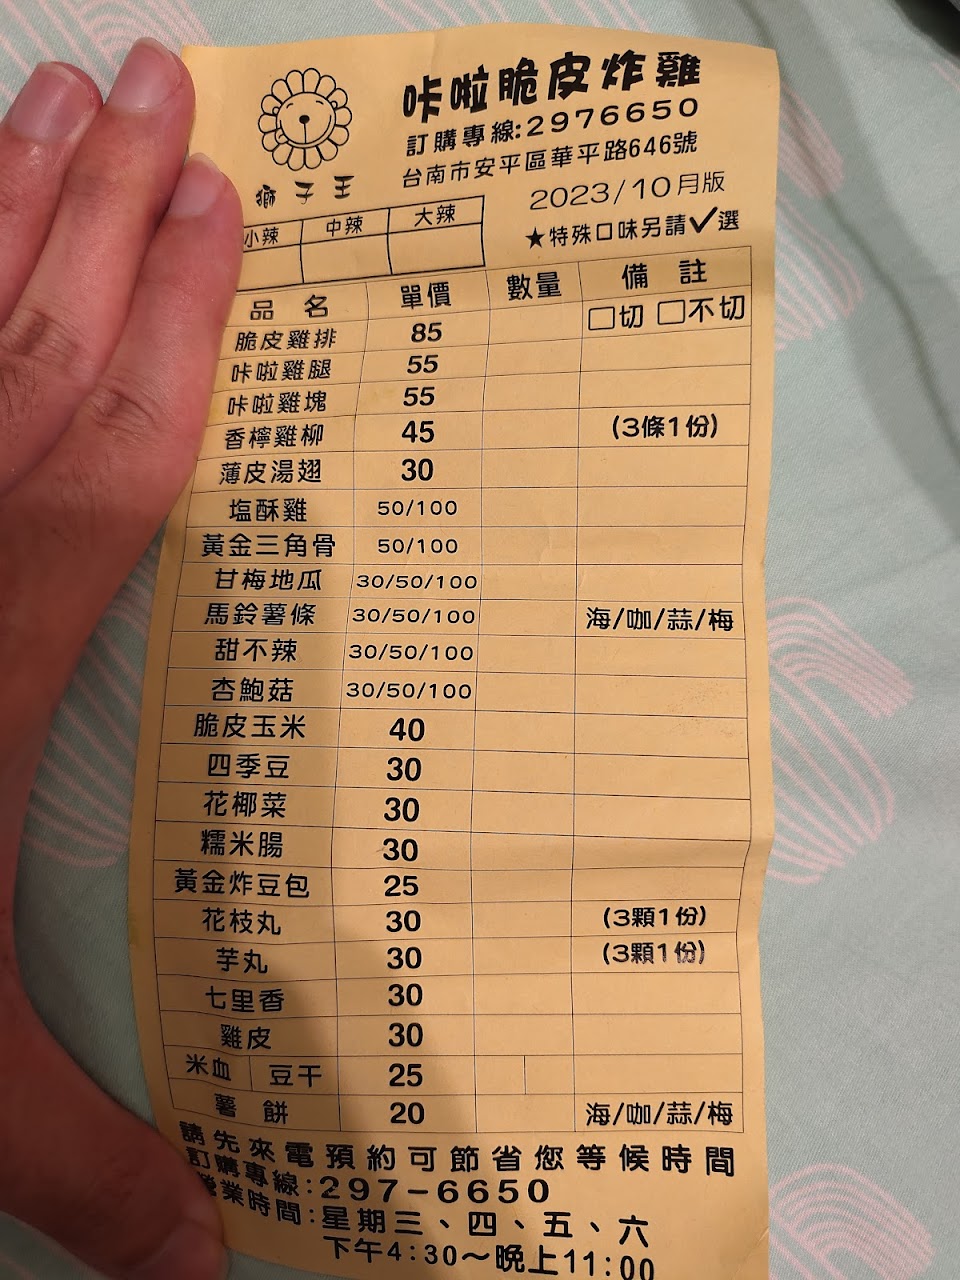 咔啦脆皮炸雞
訂購專線:2976650
台南市安平區華平路646號
獅子王
2023/10月版
小辣 中辣 大辣
★特殊口味另請✓選
品名 單價 數量 備註
脆皮雞排 85 □切 □不切
咔啦雞腿 55
咔啦雞塊 55
香檸雞柳 45 (3條1份)
薄皮湯翅 30
塩酥雞 50/100
黃金三角骨 50/100
甘梅地瓜 30/50/100
馬鈴薯條 30/50/100 海/咖/蒜/梅
甜不辣 30/50/100
杏鮑菇 30/50/100
脆皮玉米 40
四季豆 30
花椰菜 30
糯米腸 30
黃金炸豆包 25
花枝丸 30 (3顆1份)
芋丸 30 (3顆1份)
七里香 30
雞皮 30
米血 豆干 25
薯餅 20 海/咖/蒜/梅
請先來電預約可節省您等候時間
訂購專線:297-6650
營業時間:星期三、四、五、六
下午4:30～晚上11:00